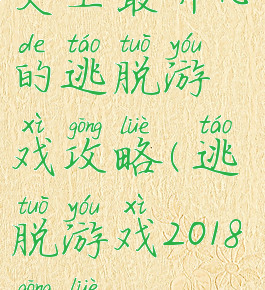 de táo tuō yóu
的逃脱游
xì gōng lüè táo
戏攻略(逃
tuō yóu xì
脱游戏2018
gōng lüè